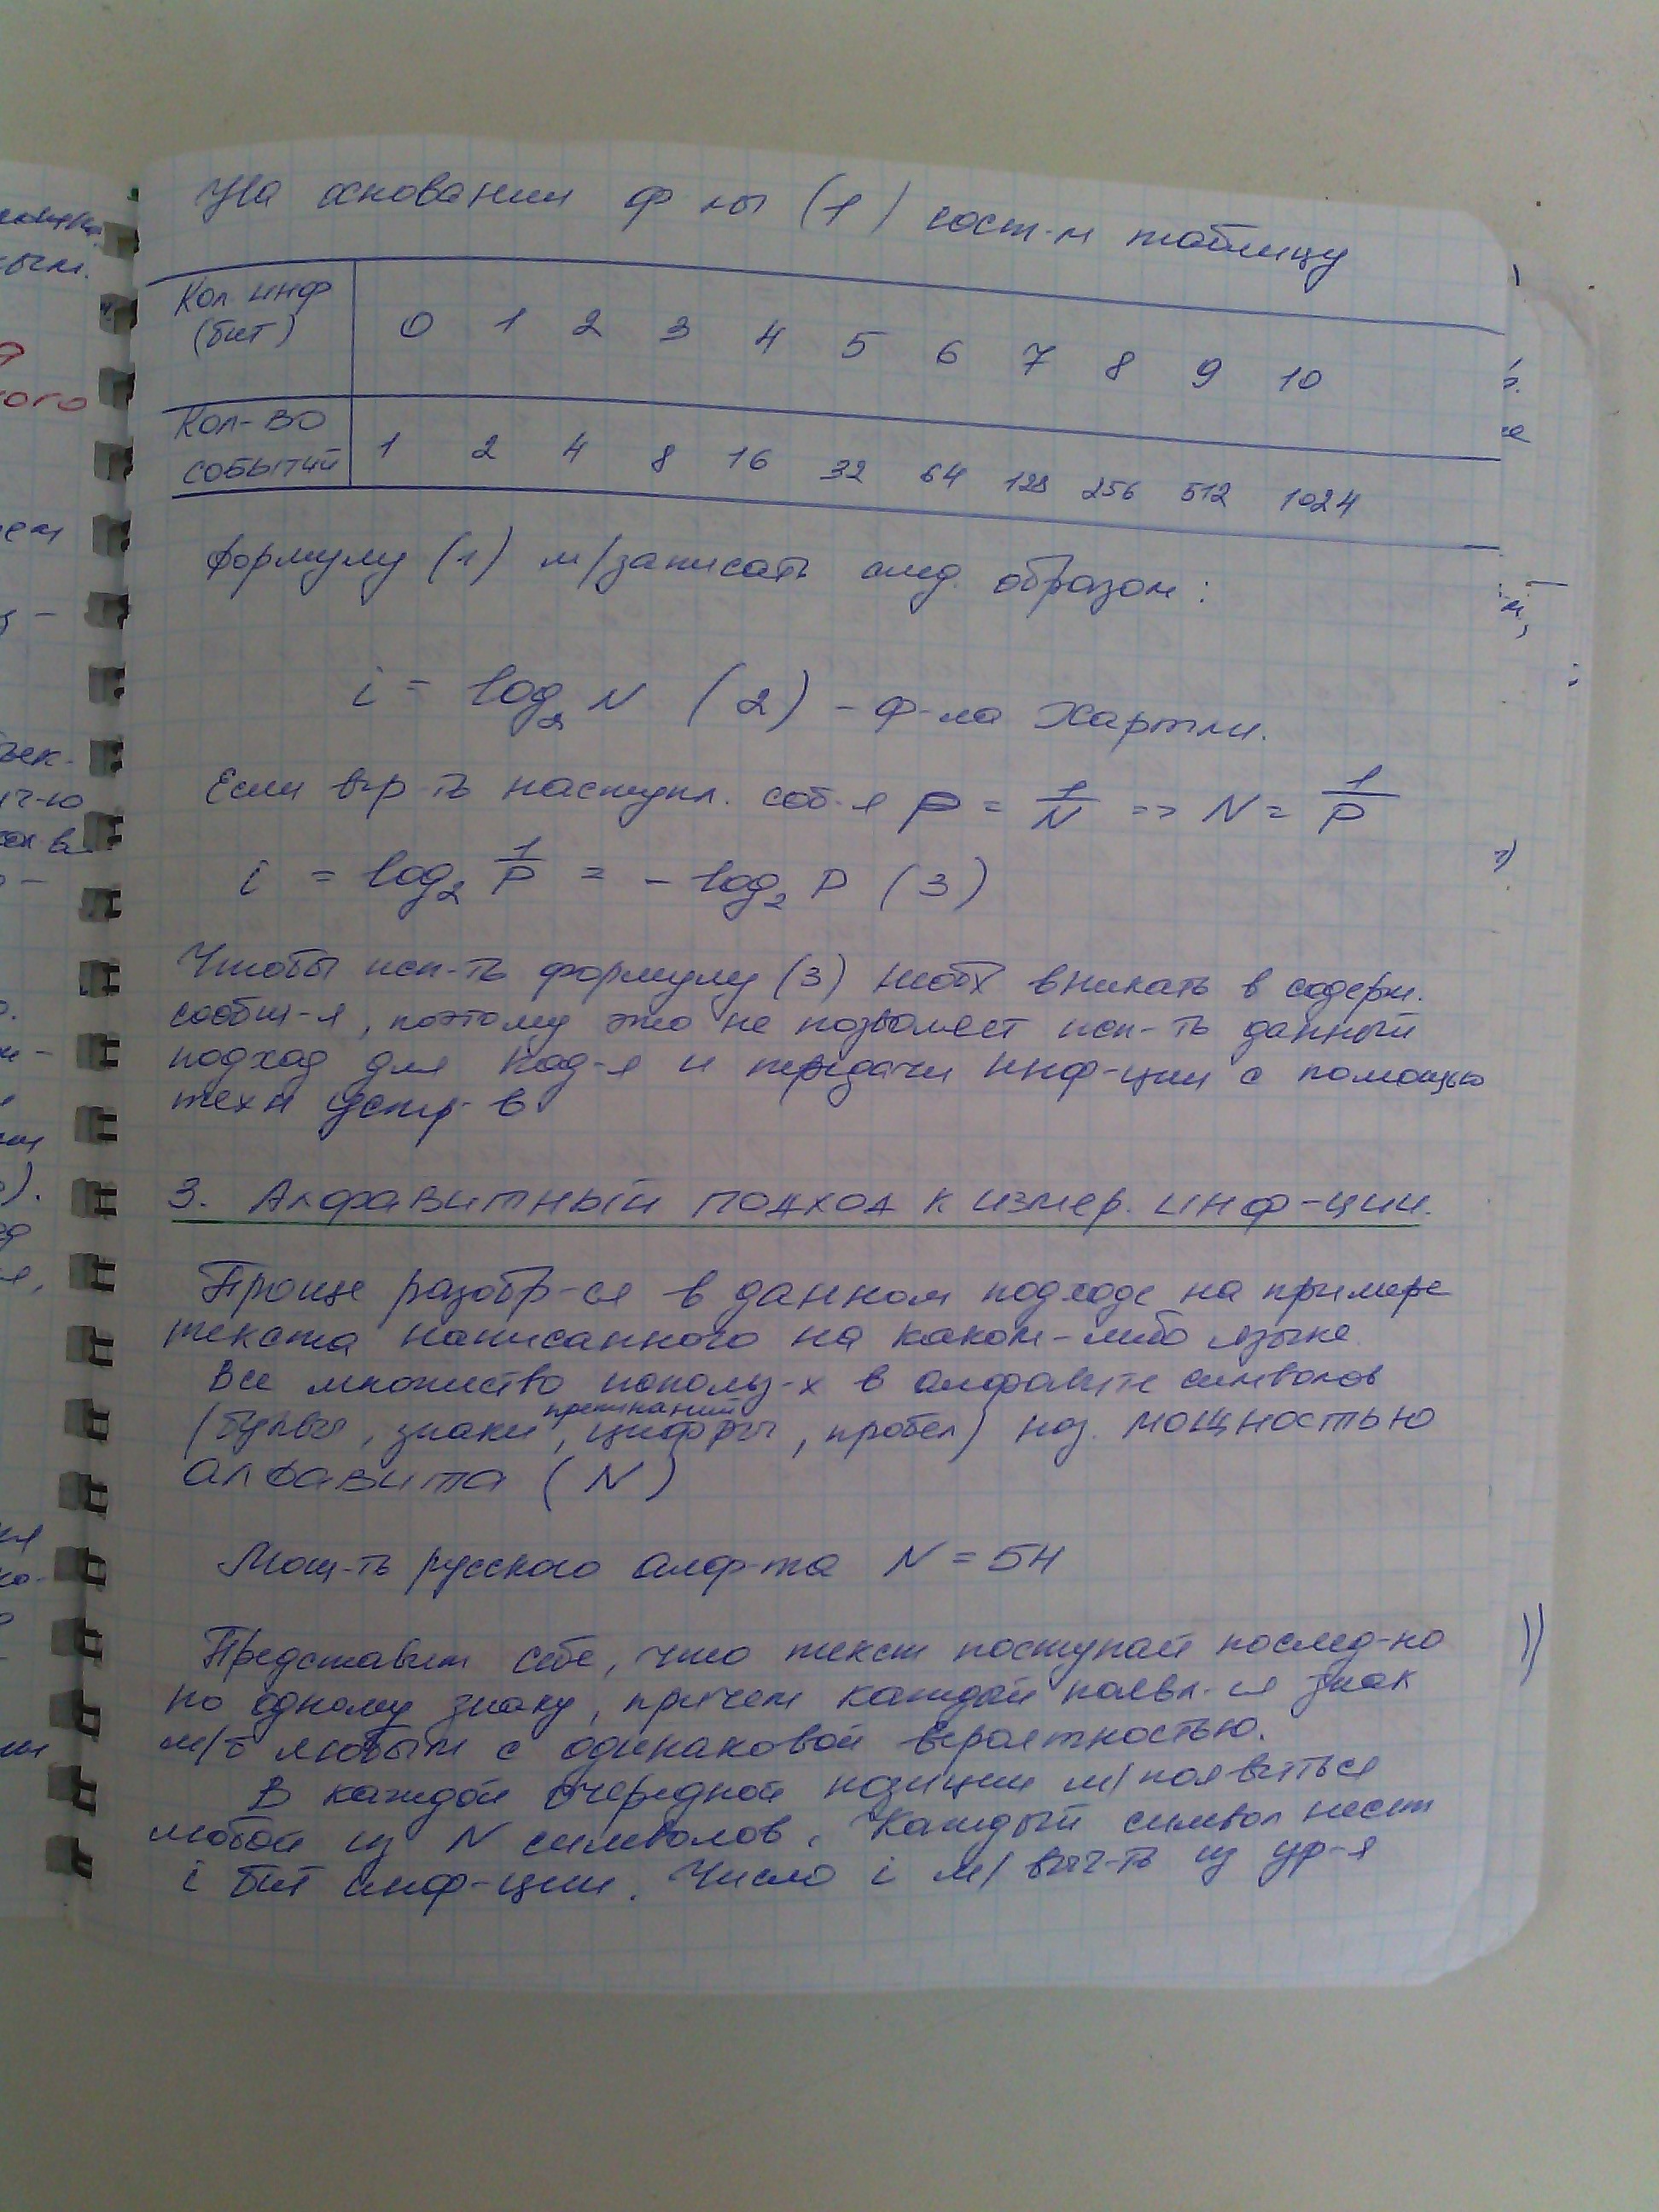 На основании ф лы (1) сост-м таблицу
Кол инф (бит) 0 1 2 3 4 5 6 7 8 9 10
Кол-во событий 1 2 4 8 16 32 64 128 256 512 1024
формулу (1) м/записать след. образом:
i = log₂ N (2) - ф-ла Хартли.
Если вер-ть наступл. соб-я P = 1/N => N = 1/P
i = log₂ 1/P = - log₂ P (3)
Чтобы исп-ть формулу (3) необх вникать в содерж.
сообщ-я, поэтому это не позволяет исп-ть данный
подход для код-я и передачи инф-ции с помощью
техн устр-в
3. Алфавитный подход к измер. инф-ции.
Проще разобр-ся в данном подходе на примере
текста написанного на каком-либо языке
Все множество использ-х в алфавите символов
(буквы, знаки препинаний, цифры, пробел) наз. мощностью
алфавита (N)
Мощ-ть русского алф-та N = 54
Представим себе, что текст поступай послед-но
по одному знаку, причем каждый появл-ся знак
м/б любым с одинаковой вероятностью.
В каждой очередной позиции м/появиться
любой из N символов. Каждый символ несет
i бит инф-ции. Число i м/ выч-ть из ур-я